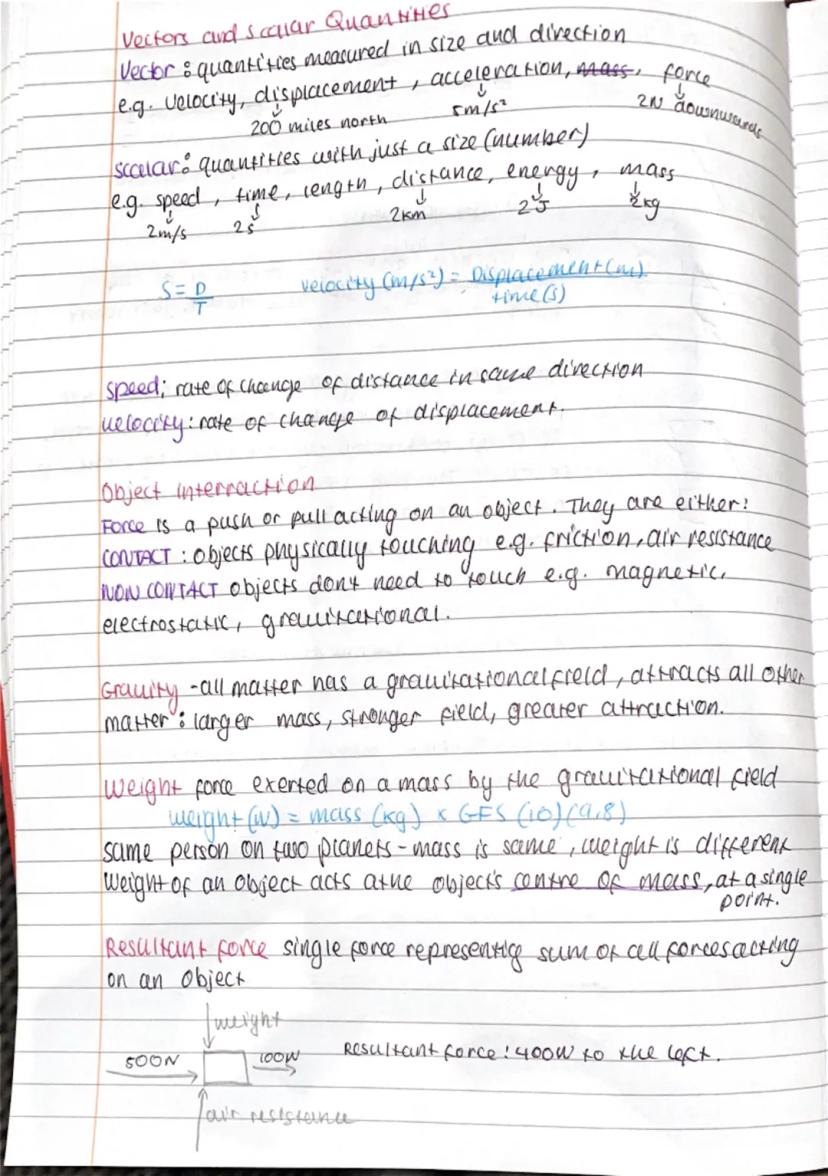 Vectors and scalar Quantities
Vector: quantities measured in size and direction
e.g. velocity, displacement, acceleration, mass, force
200 miles north 5m/s² 2N downwards
Scalar: quantities with just a size (number)
e.g. speed, time, length, distance, energy, mass
2m/s 2s 2km 2J 2kg
S = D/T velocity (m/s²) = Displacement (m)
time (s)
speed: rate of change of distance in same direction
velocity: rate of change of displacement.
Object interraction
Force is a push or pull acting on an object. They are either:
CONTACT: objects physically touching e.g. friction, air resistance
NON CONTACT objects don't need to touch e.g. magnetic,
electrostatic, gravitational.
Gravity - all matter has a gravitational field, attracts all other
matter: larger mass, stronger field, greater attraction.
Weight force exerted on a mass by the gravitational field
weight (N) = mass (kg) x GFS (10) (9.8)
same person on two planets - mass is same, weight is different
Weight of an object acts at the object's centre of mass, at a single
point.
Resultant force single force representig sum of all forces acting
on an object
weight
500N 100N Resultant force: 400N to the left.
air resistance